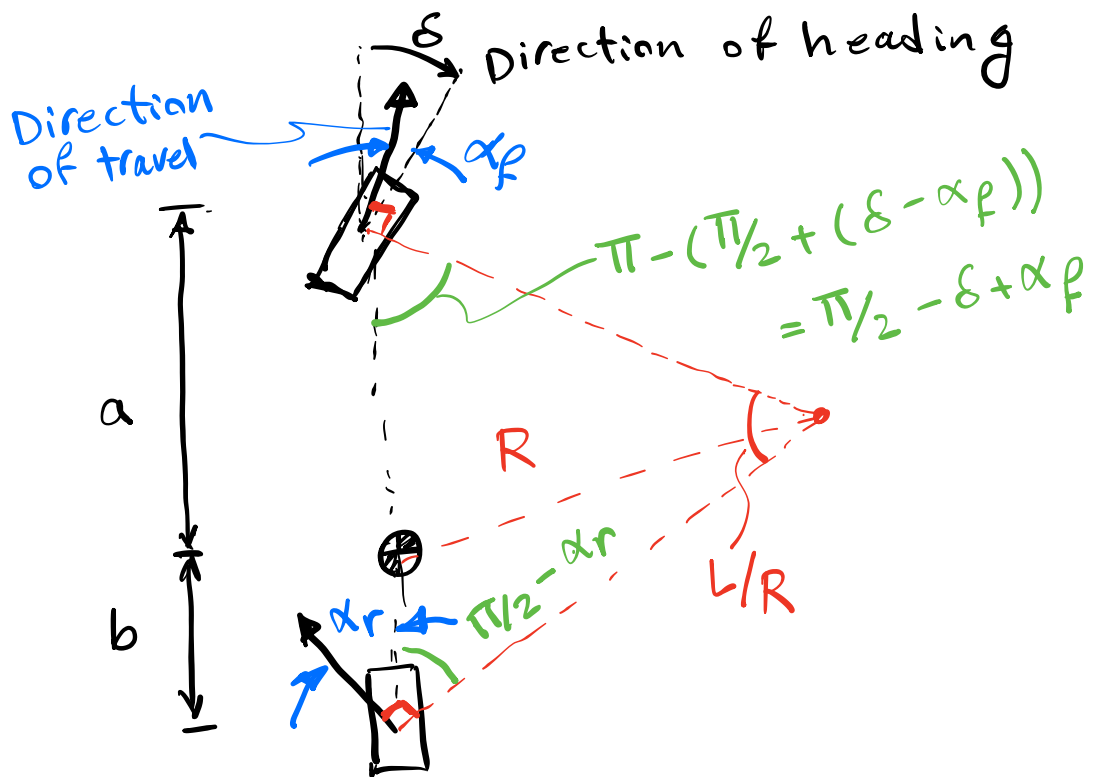 δ
Direction of heading
Direction
of travel
αf
π - (π/2 + (δ - αf))
= π/2 - δ + αf
a
R
π/2 - αr
L/R
αr
b